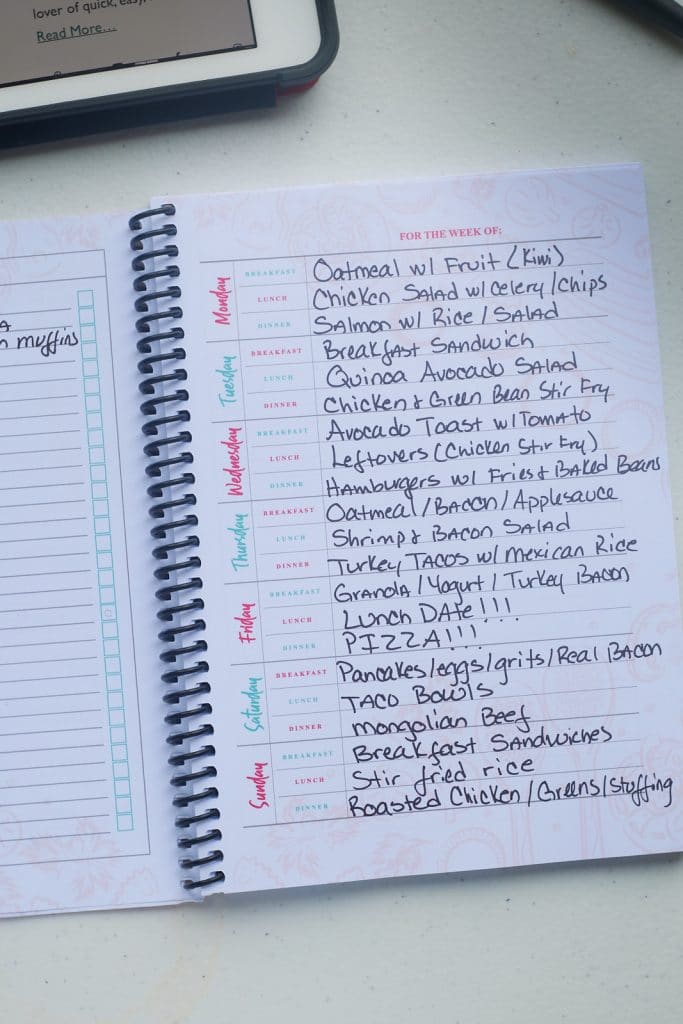 lover of quick, easy,
Read More...
A
muffins
FOR THE WEEK OF:
Monday
BREAKFAST Oatmeal w/ Fruit (Kiwi)
LUNCH Chicken SALAD w/ celery/Chips
DINNER SAlmon w/ Rice/SALAD
Tuesday
BREAKFAST Breakfast Sandwich
LUNCH Quinoa Avocado SALAD
DINNER Chicken & Green Bean Stir Fry
Wednesday
BREAKFAST Avocado Toast w/Tomato
LUNCH Leftovers (Chicken Stir Fry)
DINNER HAmburgers w/ Fries & BAked Beans
Thursday
BREAKFAST Oatmeal/BAcon/Applesauce
LUNCH Shrimp & BACON SALAD
DINNER Turkey TACOS w/ mexican Rice
Friday
BREAKFAST GRANOLA/Yogurt/Turkey BACON
LUNCH LUNCH DATE!!!
DINNER PIZZA!!!
Saturday
BREAKFAST Pancakes/eggs/grits/Real BACON
LUNCH TACO Bowls
DINNER mongolian Beef
Sunday
BREAKFAST Breakfast SANDwiches
LUNCH Stir fried rice
DINNER Roasted Chicken/Greens/Stuffing